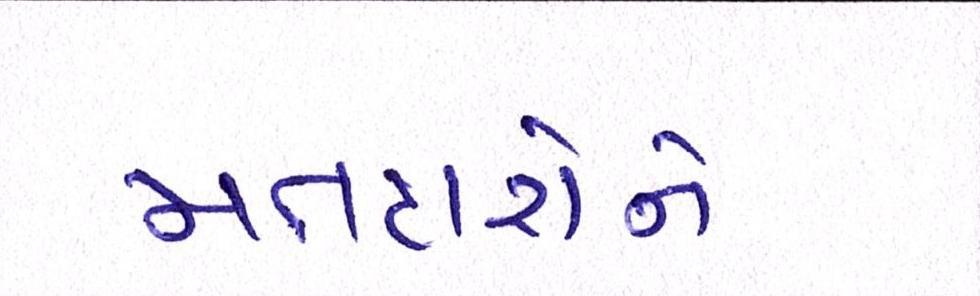 મતદારોને